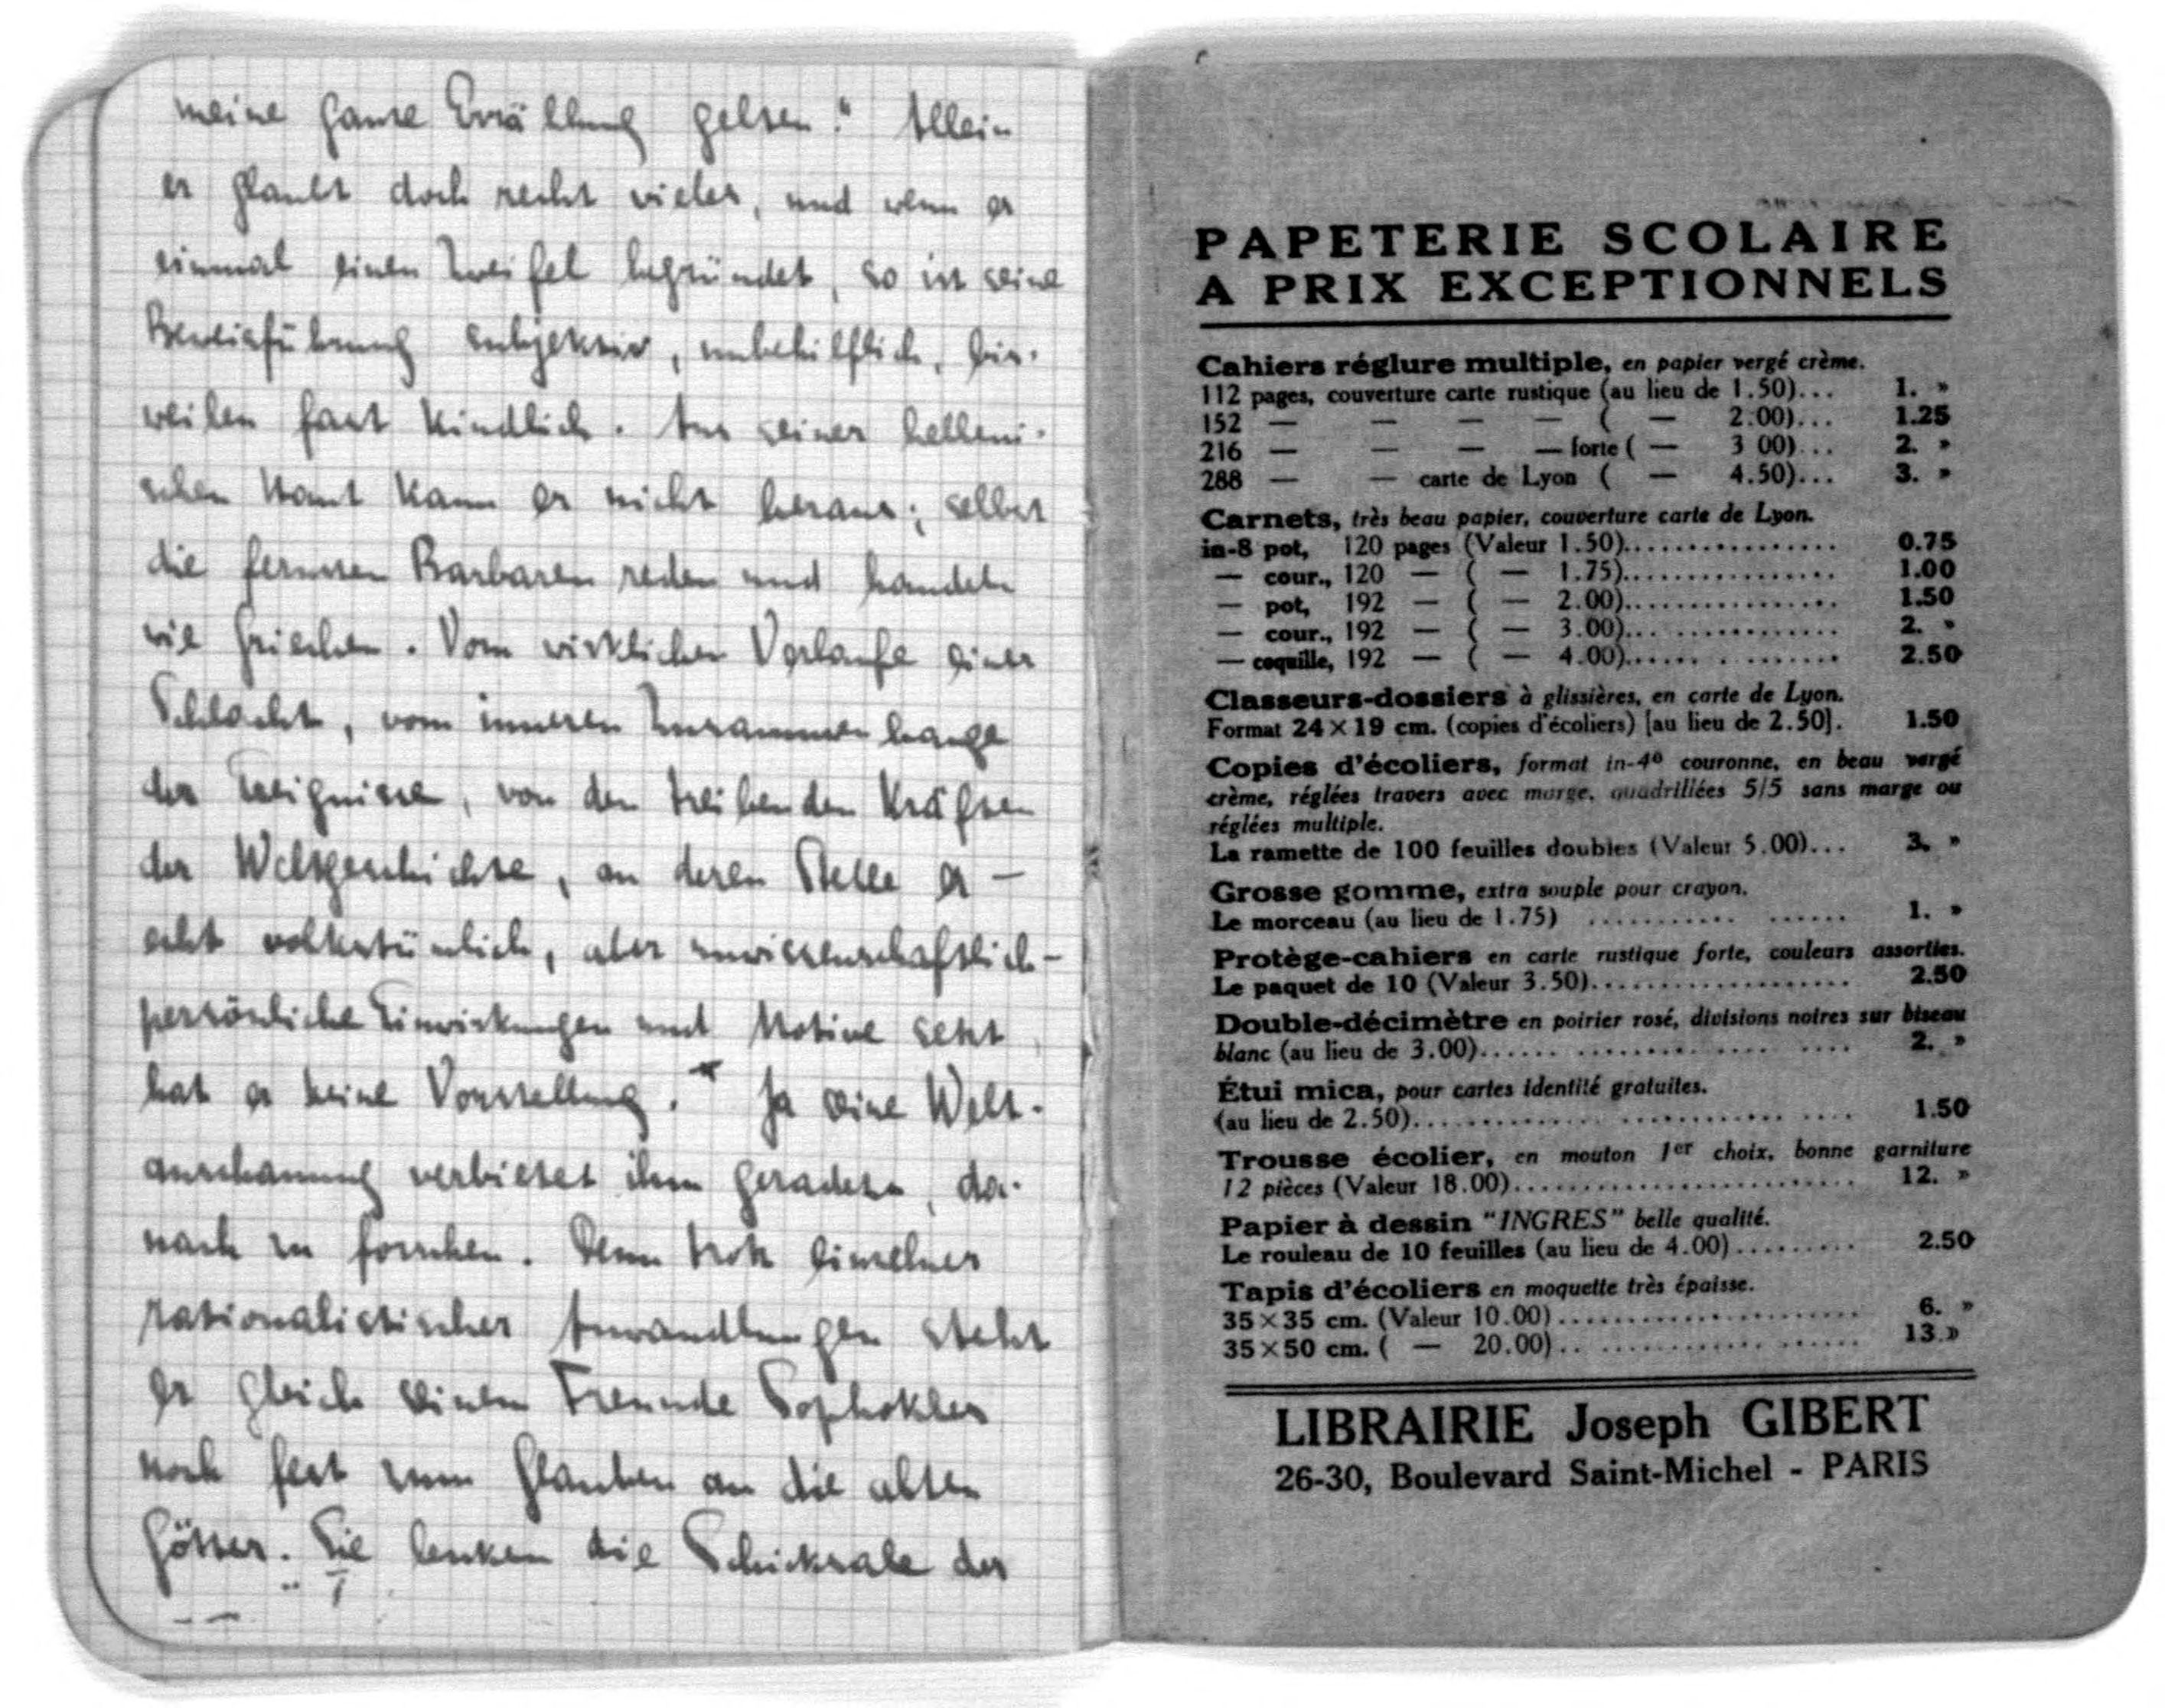 meine ganze Erzählung gelten." Allein
er glaubt doch recht vieles, und wenn er
einmal einen Zweifel begründet, so ist seine
Beweisführung subjektiv, unbehilflich, bis-
weilen fast kindlich. Aus seiner helleni-
schen Haut kann er nicht heraus; selbst
die fernsten Barbaren reden und handeln
wie Griechen. Vom wirklichen Verlaufe einer
Schlacht, vom inneren Zusammenhange
der Ereignisse, von den treibenden Kräften
der Weltgeschichte, an deren Stelle er –
echt volkstümlich, aber unwissenschaftlich –
persönliche Einwirkungen und Motive setzt,
hat er keine Vorstellung." Ja seine Welt-
anschauung verbietet ihm geradezu, da-
nach zu forschen. Denn trotz einzelner
rationalistischer Anwandlungen steht
er gleich seinem Freunde Sophokles
noch fest zum Glauben an die alten
Götter. Sie lenken die Schicksale der
PAPETERIE SCOLAIRE
A PRIX EXCEPTIONNELS
Cahiers réglure multiple, en papier vergé crème.
112 pages, couverture carte rustique (au lieu de 1.50)... 1. »
152 — — — — ( — 2.00)... 1.25
216 — — — — forte ( — 3 00)... 2. »
288 — — carte de Lyon ( — 4.50)... 3. »
Carnets, très beau papier, couverture carte de Lyon.
in-8 pot, 120 pages (Valeur 1.50)................. 0.75
— cour., 120 — ( — 1.75)................. 1.00
— pot, 192 — ( — 2.00)................. 1.50
— cour., 192 — ( — 3.00)................. 2. »
— coquille, 192 — ( — 4.00)................. 2.50
Classeurs-dossiers à glissières, en carte de Lyon.
Format 24 × 19 cm. (copies d'écoliers) [au lieu de 2.50]. 1.50
Copies d'écoliers, format in-4º couronne, en beau vergé
crème, réglées travers avec marge, quadrillées 5/5 sans marge ou
réglées multiple.
La ramette de 100 feuilles doubles (Valeur 5.00)... 3. »
Grosse gomme, extra souple pour crayon.
Le morceau (au lieu de 1.75) ................. 1. »
Protège-cahiers en carte rustique forte, couleurs assorties.
Le paquet de 10 (Valeur 3.50)................... 2.50
Double-décimètre en poirier rosé, divisions noires sur biseau
blanc (au lieu de 3.00)...................... 2. »
Étui mica, pour cartes identité gratuites.
(au lieu de 2.50)........................... 1.50
Trousse écolier, en mouton 1er choix, bonne garniture
12 pièces (Valeur 18.00)......................... 12. »
Papier à dessin "INGRES" belle qualité.
Le rouleau de 10 feuilles (au lieu de 4.00).......... 2.50
Tapis d'écoliers en moquette très épaisse.
35 × 35 cm. (Valeur 10.00)...................... 6. »
35 × 50 cm. ( — 20.00)...................... 13.»
LIBRAIRIE Joseph GIBERT
26-30, Boulevard Saint-Michel - PARIS